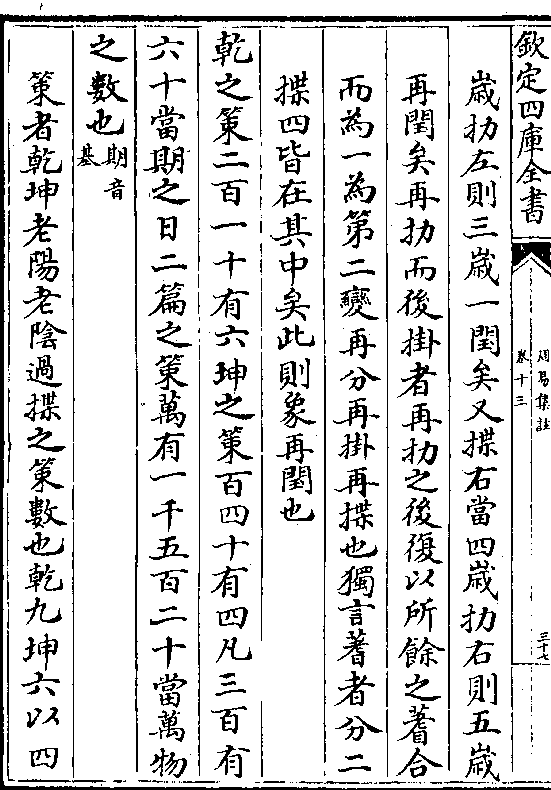 欽定四庫全書
周易集註
卷十三
三十七
歲扐左則三歲一閏矣又揲右當四歲扐右則五歲
再閏矣再扐而後掛者再扐之後復以所餘之蓍合
而為一為第二變再分再掛再揲也獨言蓍者分二
揲四皆在其中矣此則象再閏也
乾之策二百一十有六坤之策百四十有四凡三百有
六十當期之日二篇之策萬有一千五百二十當萬物
之數也期音
基
策者乾坤老陽老陰過揲之策數也乾九坤六以四